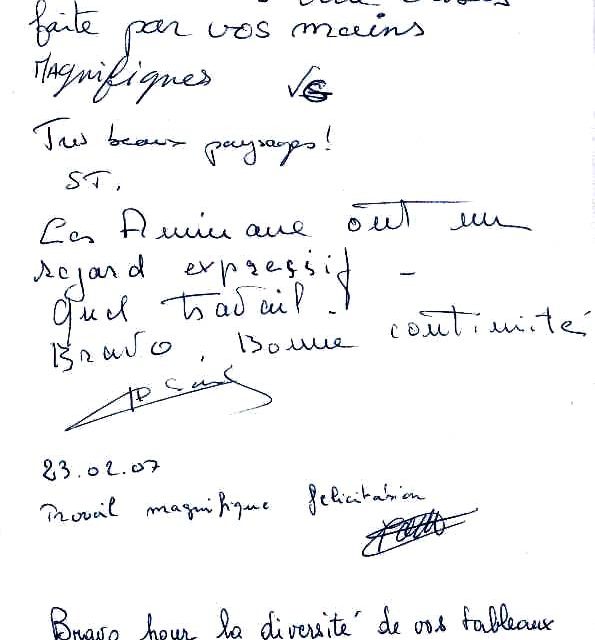 faite par vos mains
Magnifiques
Tres beaux paysages!
ST.
Les Animaux ont un
regard expressif -
quel travail.
Bravo. Bonne continuité
23.02.07
Travail magnifique felicitation
Bravo pour la diversité de vos tableaux